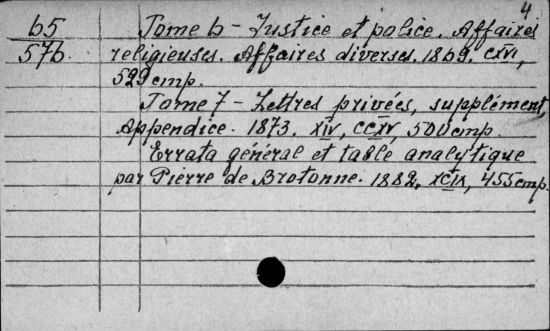 4
65 Tome 6 - Justice et police. Affaires
576. religieuses. Affaires diverses. 1869. CXVI,
529 стр.
Tome 7 - Lettres privées, supplément,
Appendice. 1873. XIV, CCXV, 500 стр.
Errata général et table analytique
par Pierre de Brotonne. 1882. XCIX, 455 стр.